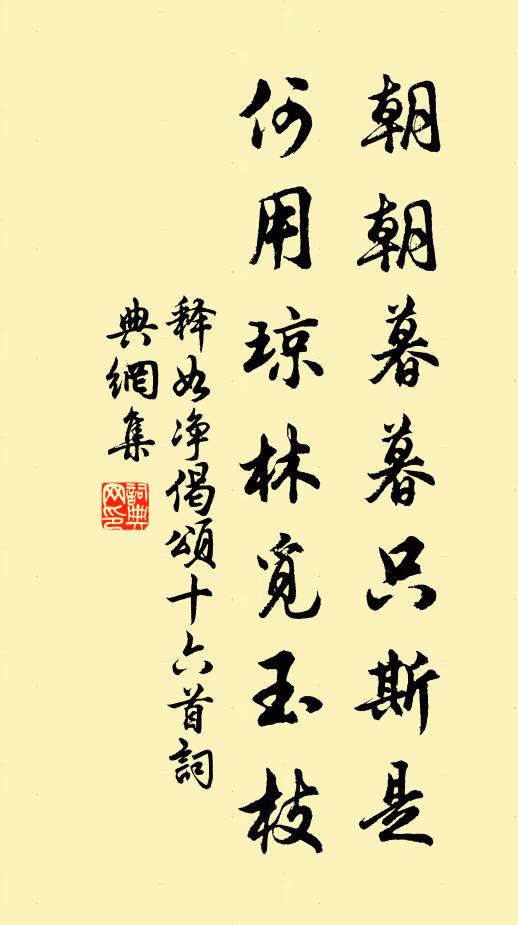 朝朝暮暮只斯是
何用琼林觅玉枝
释如净偈頌十六首詞
典網集
詞典网印